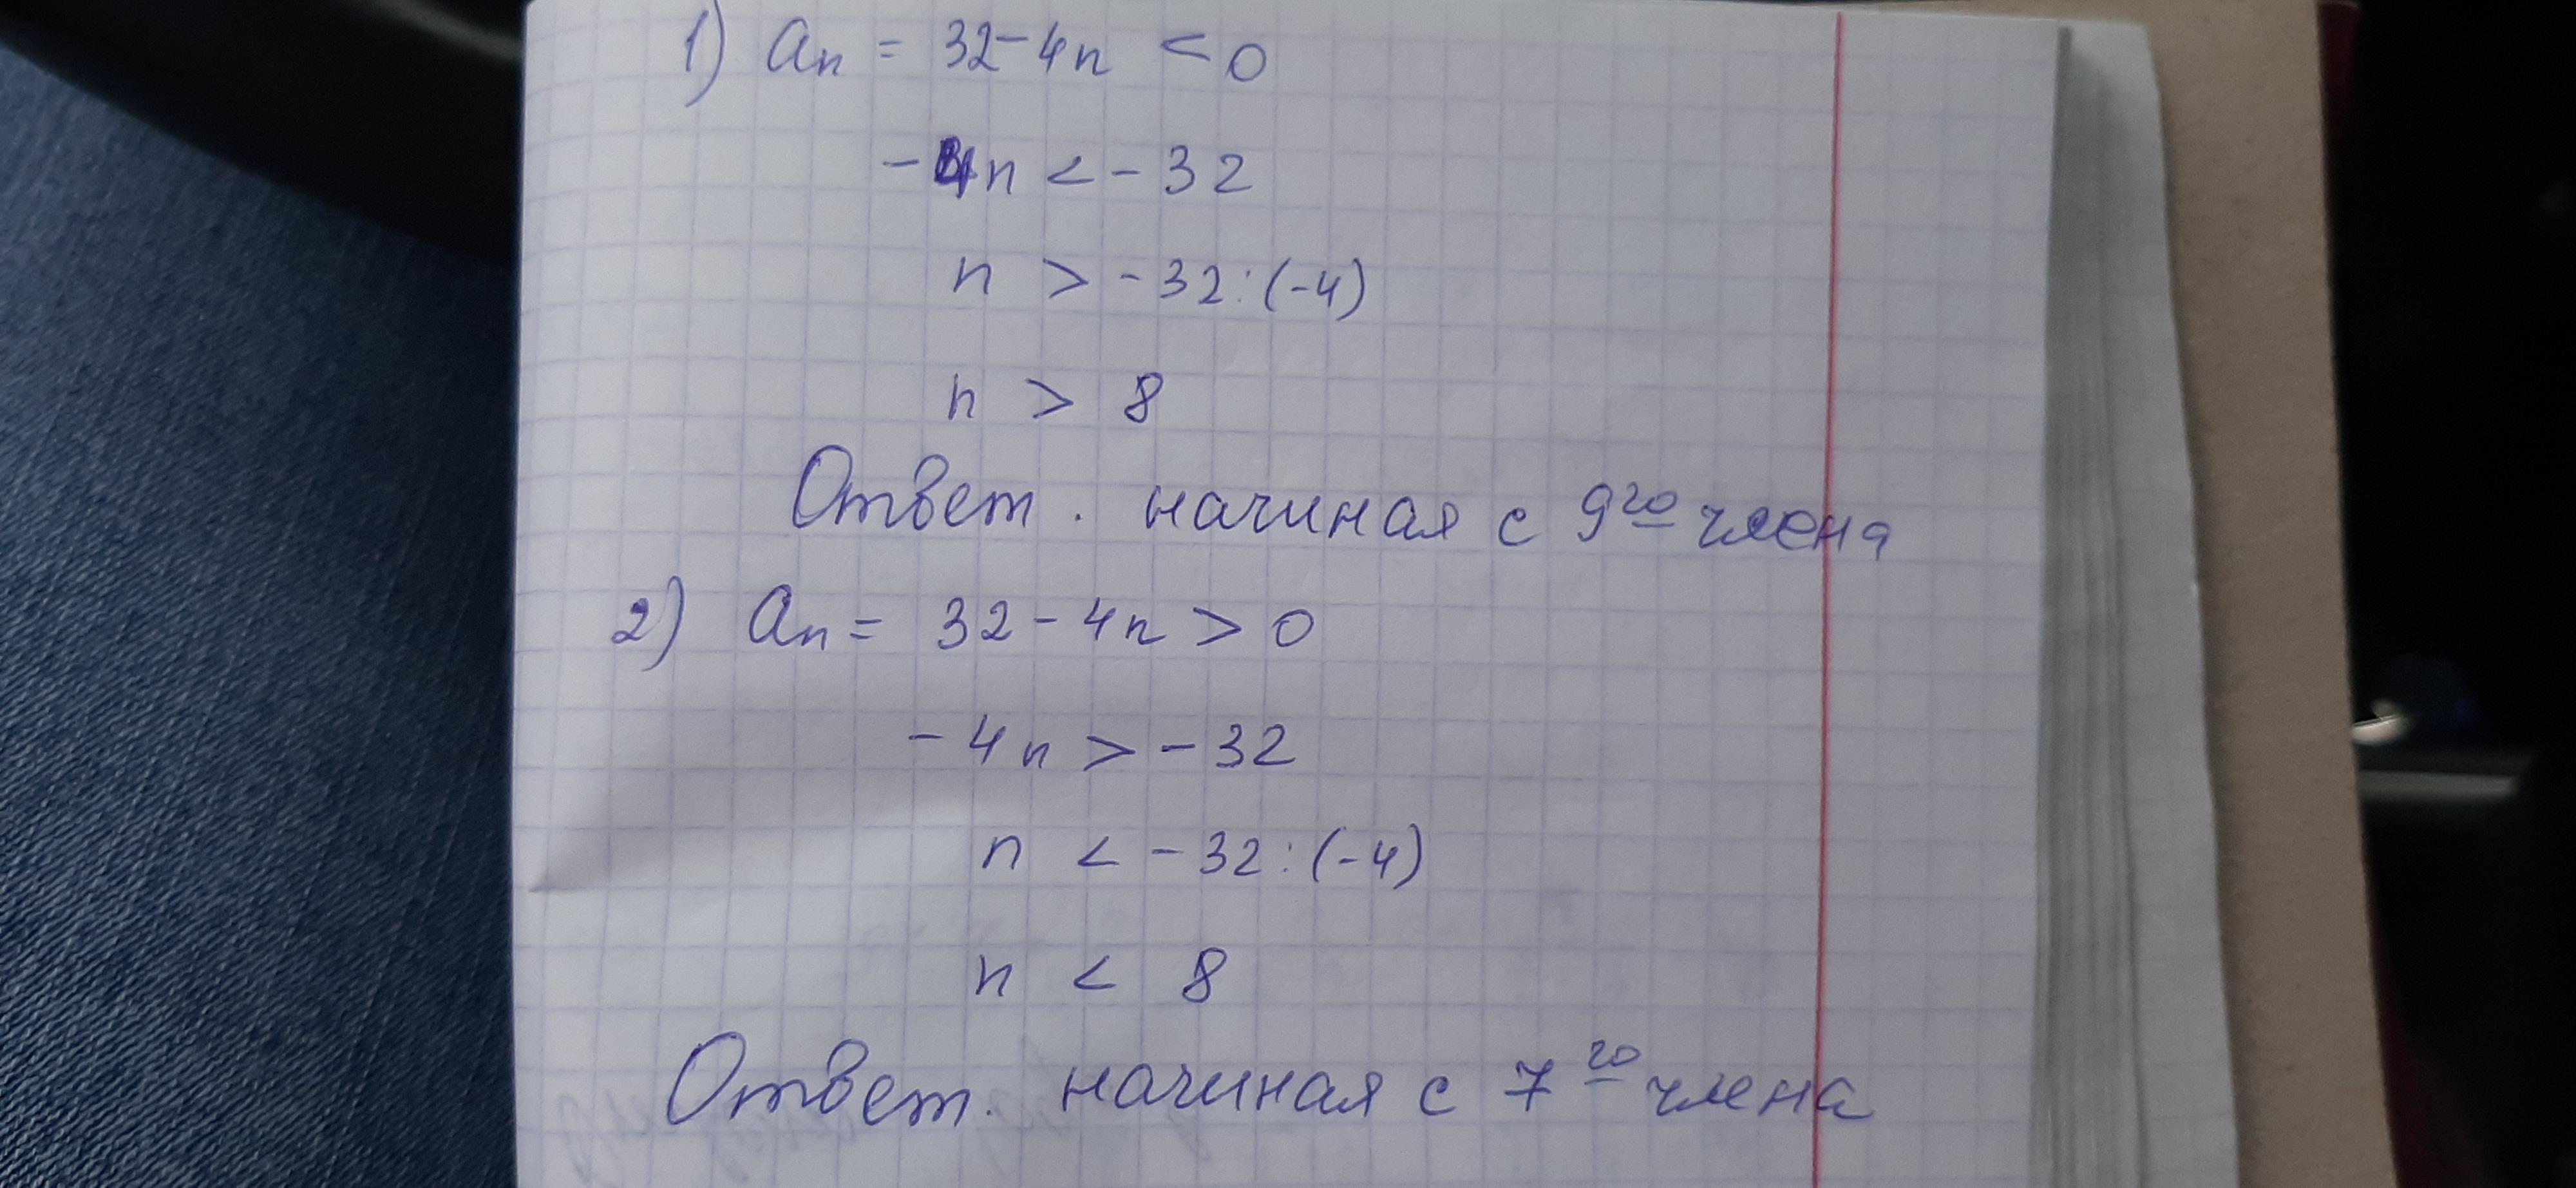 1) an = 32 - 4n < 0
- 4n < - 32
n > - 32 : (-4)
n > 8
Ответ. начиная с 9го члена
2) an = 32 - 4n > 0
- 4n > - 32
n < - 32 : (-4)
n < 8
Ответ. начиная с 7го члена